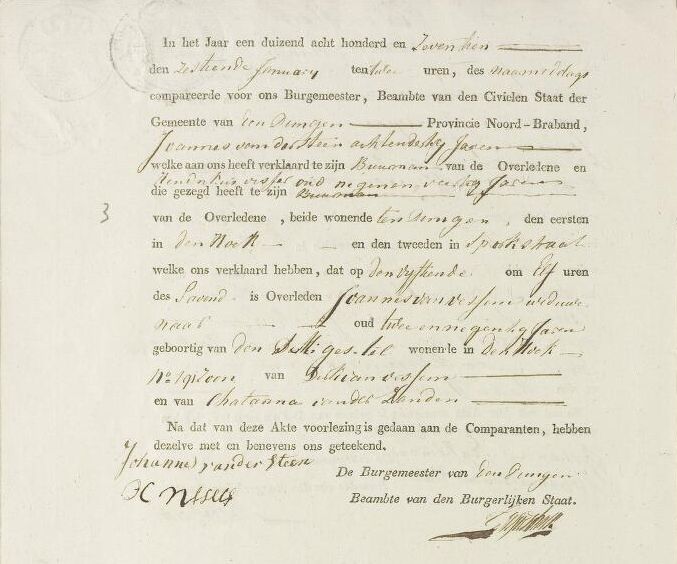 In het Jaar een duizend acht honderd en Zeventien
den zestiende January ten twee uren, des naamiddags
compareerde voor ons Burgemeester, Beambte van den Civielen Staat der
Gemeente van den Dungen Provincie Noord-Braband,
Joannes van der Steen achtendertig Jaren
welke aan ons heeft verklaard te zijn Buurman van de Overledene en
oud negenenveertig Jaren
die gezegd heeft te zijn Buurman
van de Overledene, beide wonende ten Dungen, den eersten
3
in den Hoek en den tweeden in Spurkstraat
welke ons verklaard hebben, dat op den vyftiende om Elf uren
des Savond is Overleden Joannes van Vessem weduwe
naar oud twee en negentig Jaren
geboortig van den wonende in Den Hoek
No 19 Zoon van Dirk van Vessem
en van van der Zanden
Na dat van deze Akte voorlezing is gedaan aan de Comparanten, hebben
dezelve met en benevens ons geteekend.
Johannes van der Steen
De Burgemeester van den Dungen
Beambte van den Burgerlijken Staat.